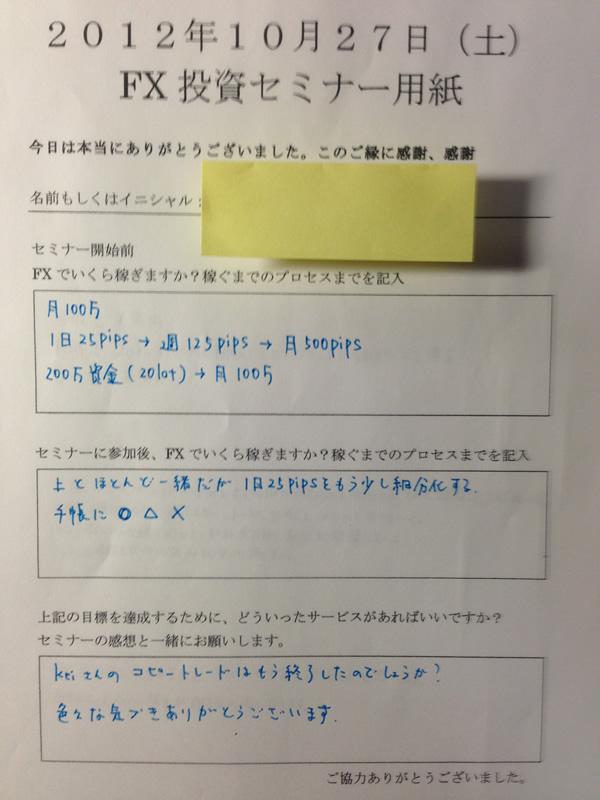 2012年10月27日（土）
FX投資セミナー用紙
今日は本当にありがとうございました。このご縁に感謝、感謝
名前もしくはイニシャル：
セミナー開始前
FXでいくら稼ぎますか？稼ぐまでのプロセスまでを記入
月100万
1日25pips → 週125pips → 月500pips
200万資金(20lot) → 月100万
セミナーに参加後、FXでいくら稼ぎますか？稼ぐまでのプロセスまでを記入
上とほとんど一緒だが 1日25pipsをもう少し細分化する.
手帳に ○ △ ×
上記の目標を達成するために、どういったサービスがあればいいですか？
セミナーの感想と一緒にお願いします。
keiさんの コピートレードはもう終了したのでしょうか?
色々な気づきありがとうございます.
ご協力ありがとうございました。